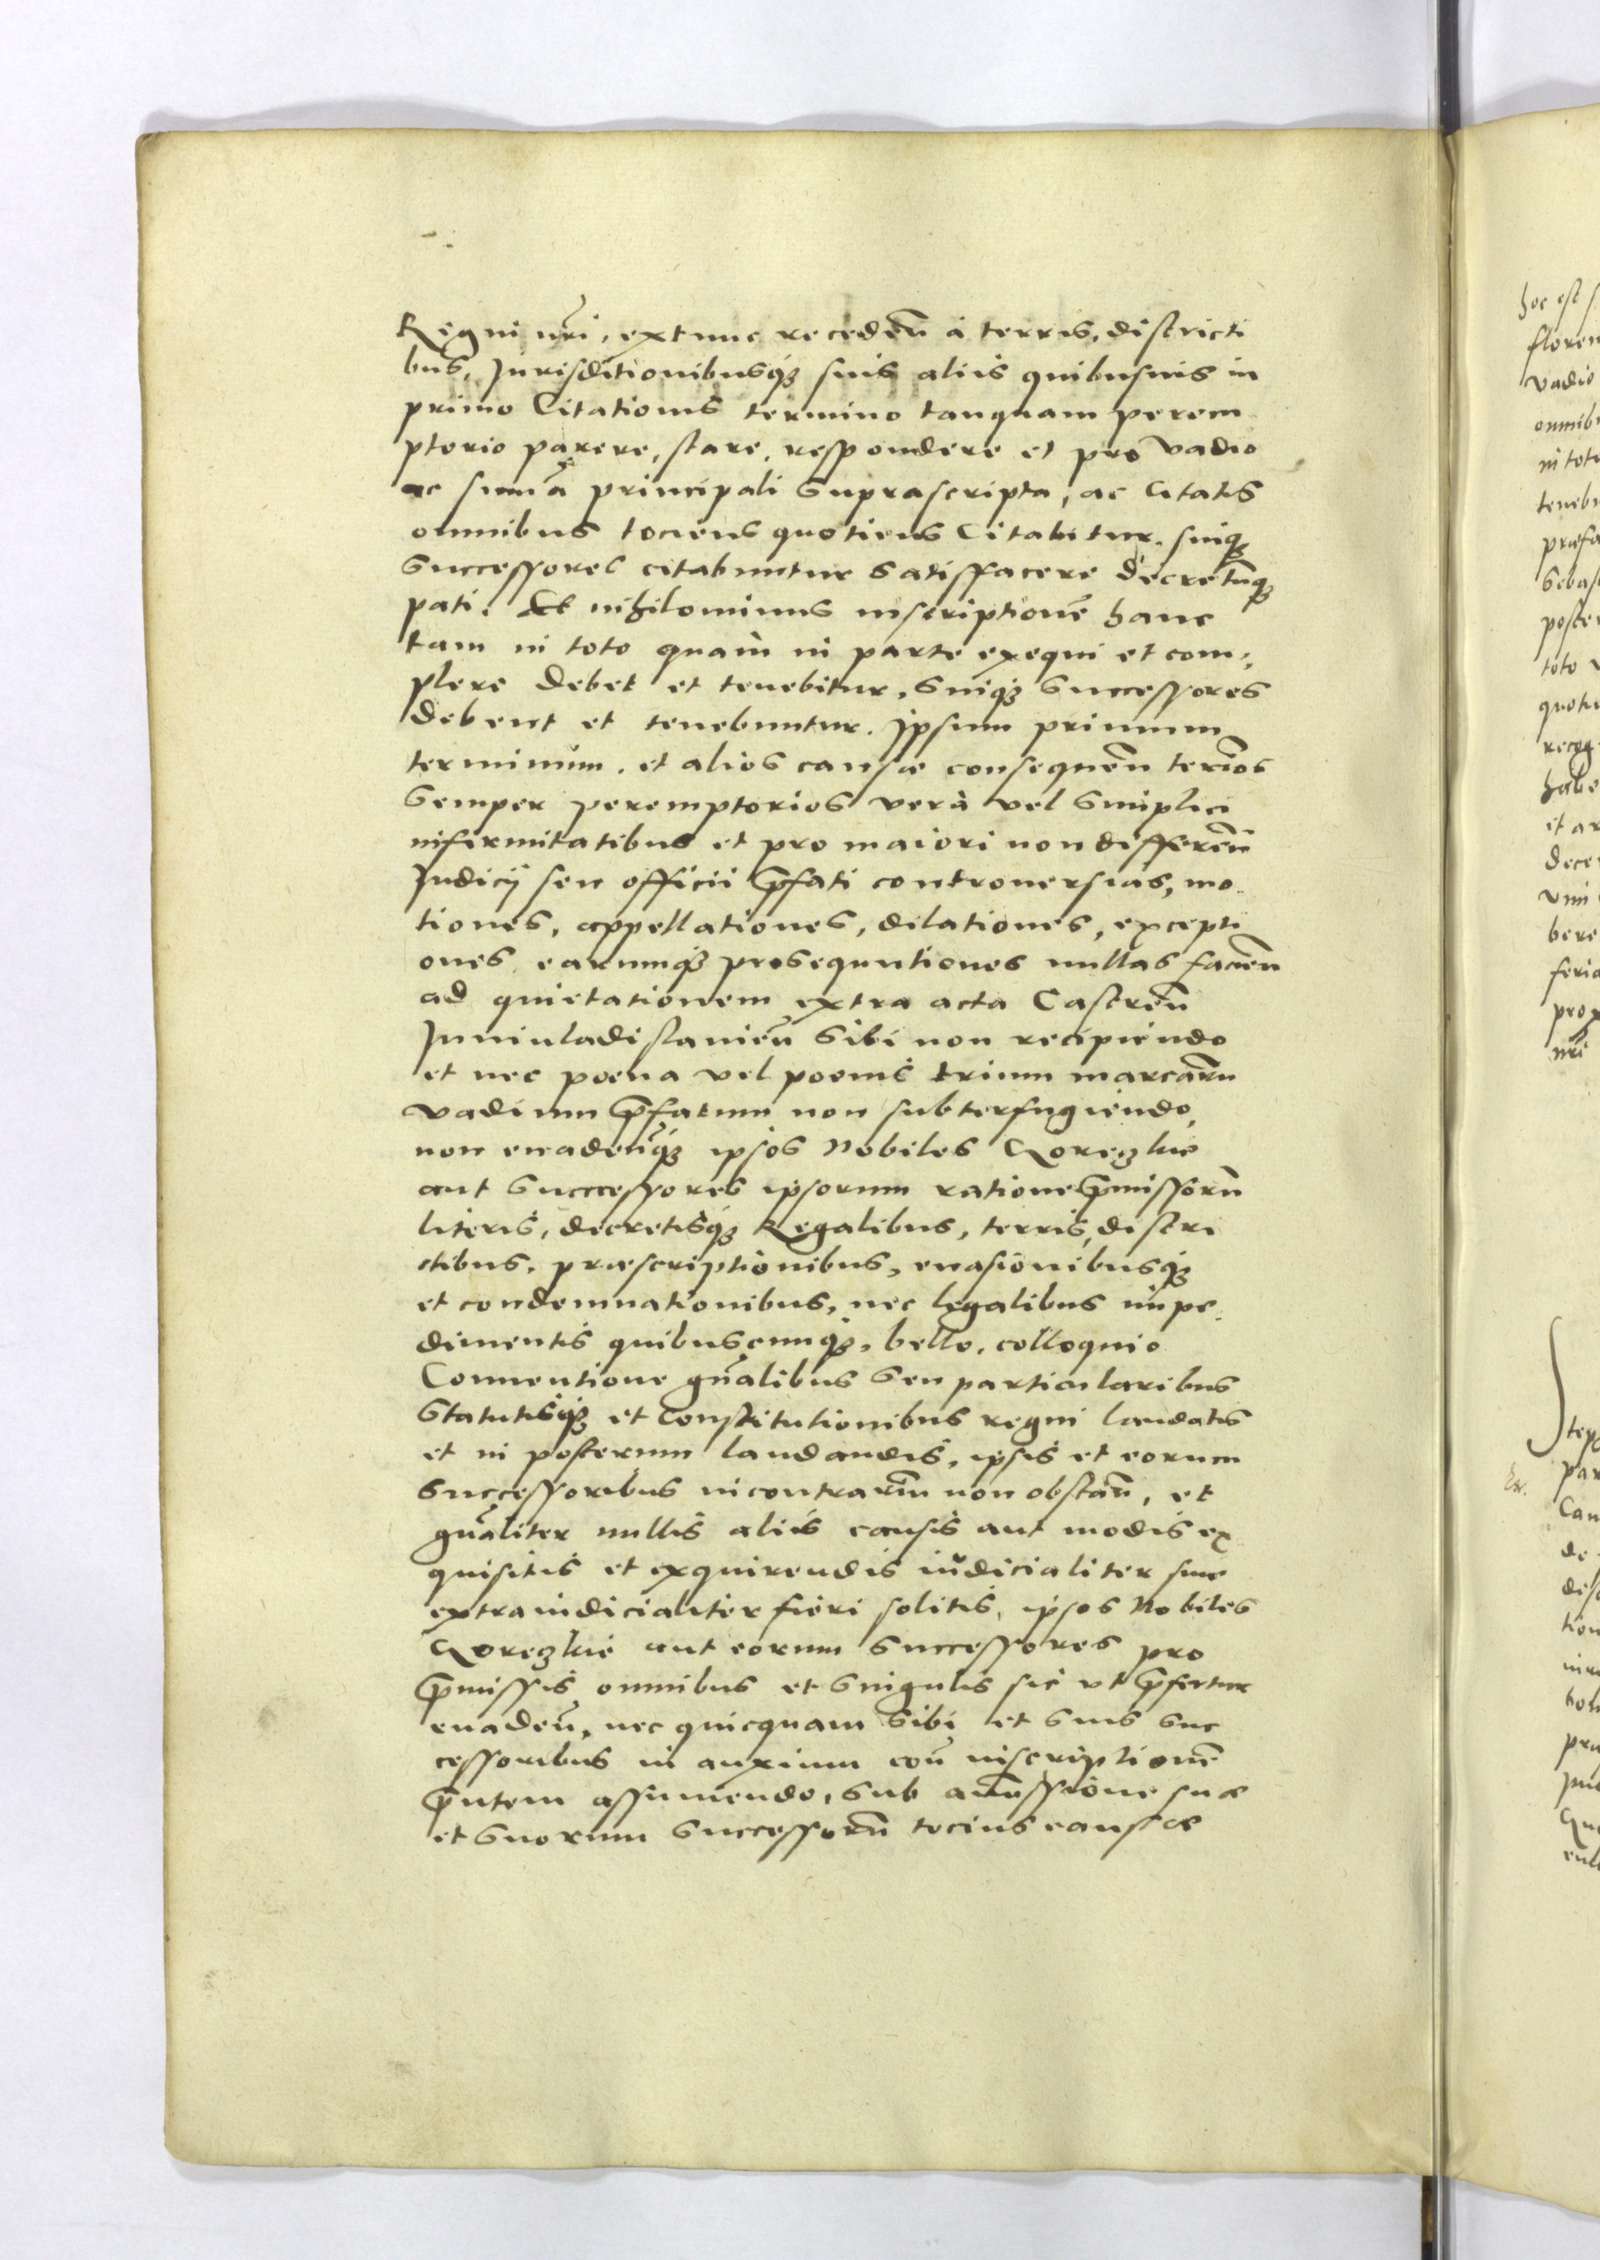 Regni nr̃i, extunc recedeñ à terris, districti
bus, Jurisditionibusq3 suis aliis quibusuis in
primo Citationis termino tanquam perem
ptorio parere, stare, respondere et pro vadio
ac sum̃a principali suprascripta, ac citatis
omnibus tociens quotiens Citabitur, suiq3
Successores citabuntur satisfacere decretũq3
pati. Et nihilominus inscriptionẽ hanc
tam in toto quam in parte exequi et com:
plere debet et tenebitur, suiq3 successores
debent et tenebuntur. Ipsum primum
terminum, et alios causæ consequeñ termĩos
semper peremptorios vera vel simplici
infirmitatibus et pro maiori non differeñ
Judicij seu officii p̃fati controuersias, mo
tiones, appellationes, dilationes, excepti
ones earumq3 prosequutiones nullas facieñ
ad quietationem extra acta Castreñ
Juniuladislauieñ sibi non recipiendo
et nec poena vel poenis trium marcarũ
vadium p̃fatum non subterfugiendo,
non euadeñq3 ipsos Nobiles Qorezkie
aut successores ipsorum ratione p̃missorũ
literis, decretisq3 Regalibus, terris, distri
ctibus, præscriptionibus, euasionibusq3
et condemnationibus, nec legalibus impe
dimentis quibuscunq3, bello, colloquio
Conuentione gñalibus seu particularibus
Statutisq3 et constitutionibus regni laudatis
et in posterum laudandis, ipsis et eorum
successoribus in contrariũ non obstañ, et
gñaliter nullis aliis causis aut modis ex
quisitis et exquirendis iudicialiter siue
extraiudicialiter fieri solitis, ipsos Nobiles
Qorezkie aut eorum successores pro
p̃missis omnibus et singulis sic vt p̃fertur
euadeñ, nec quicquam sibi et suis suc
cessoribus in auxium coñ inscriptionẽ
p̃ntem assumendo, sub amissione suæ
et suorum successorũ tocius causæ